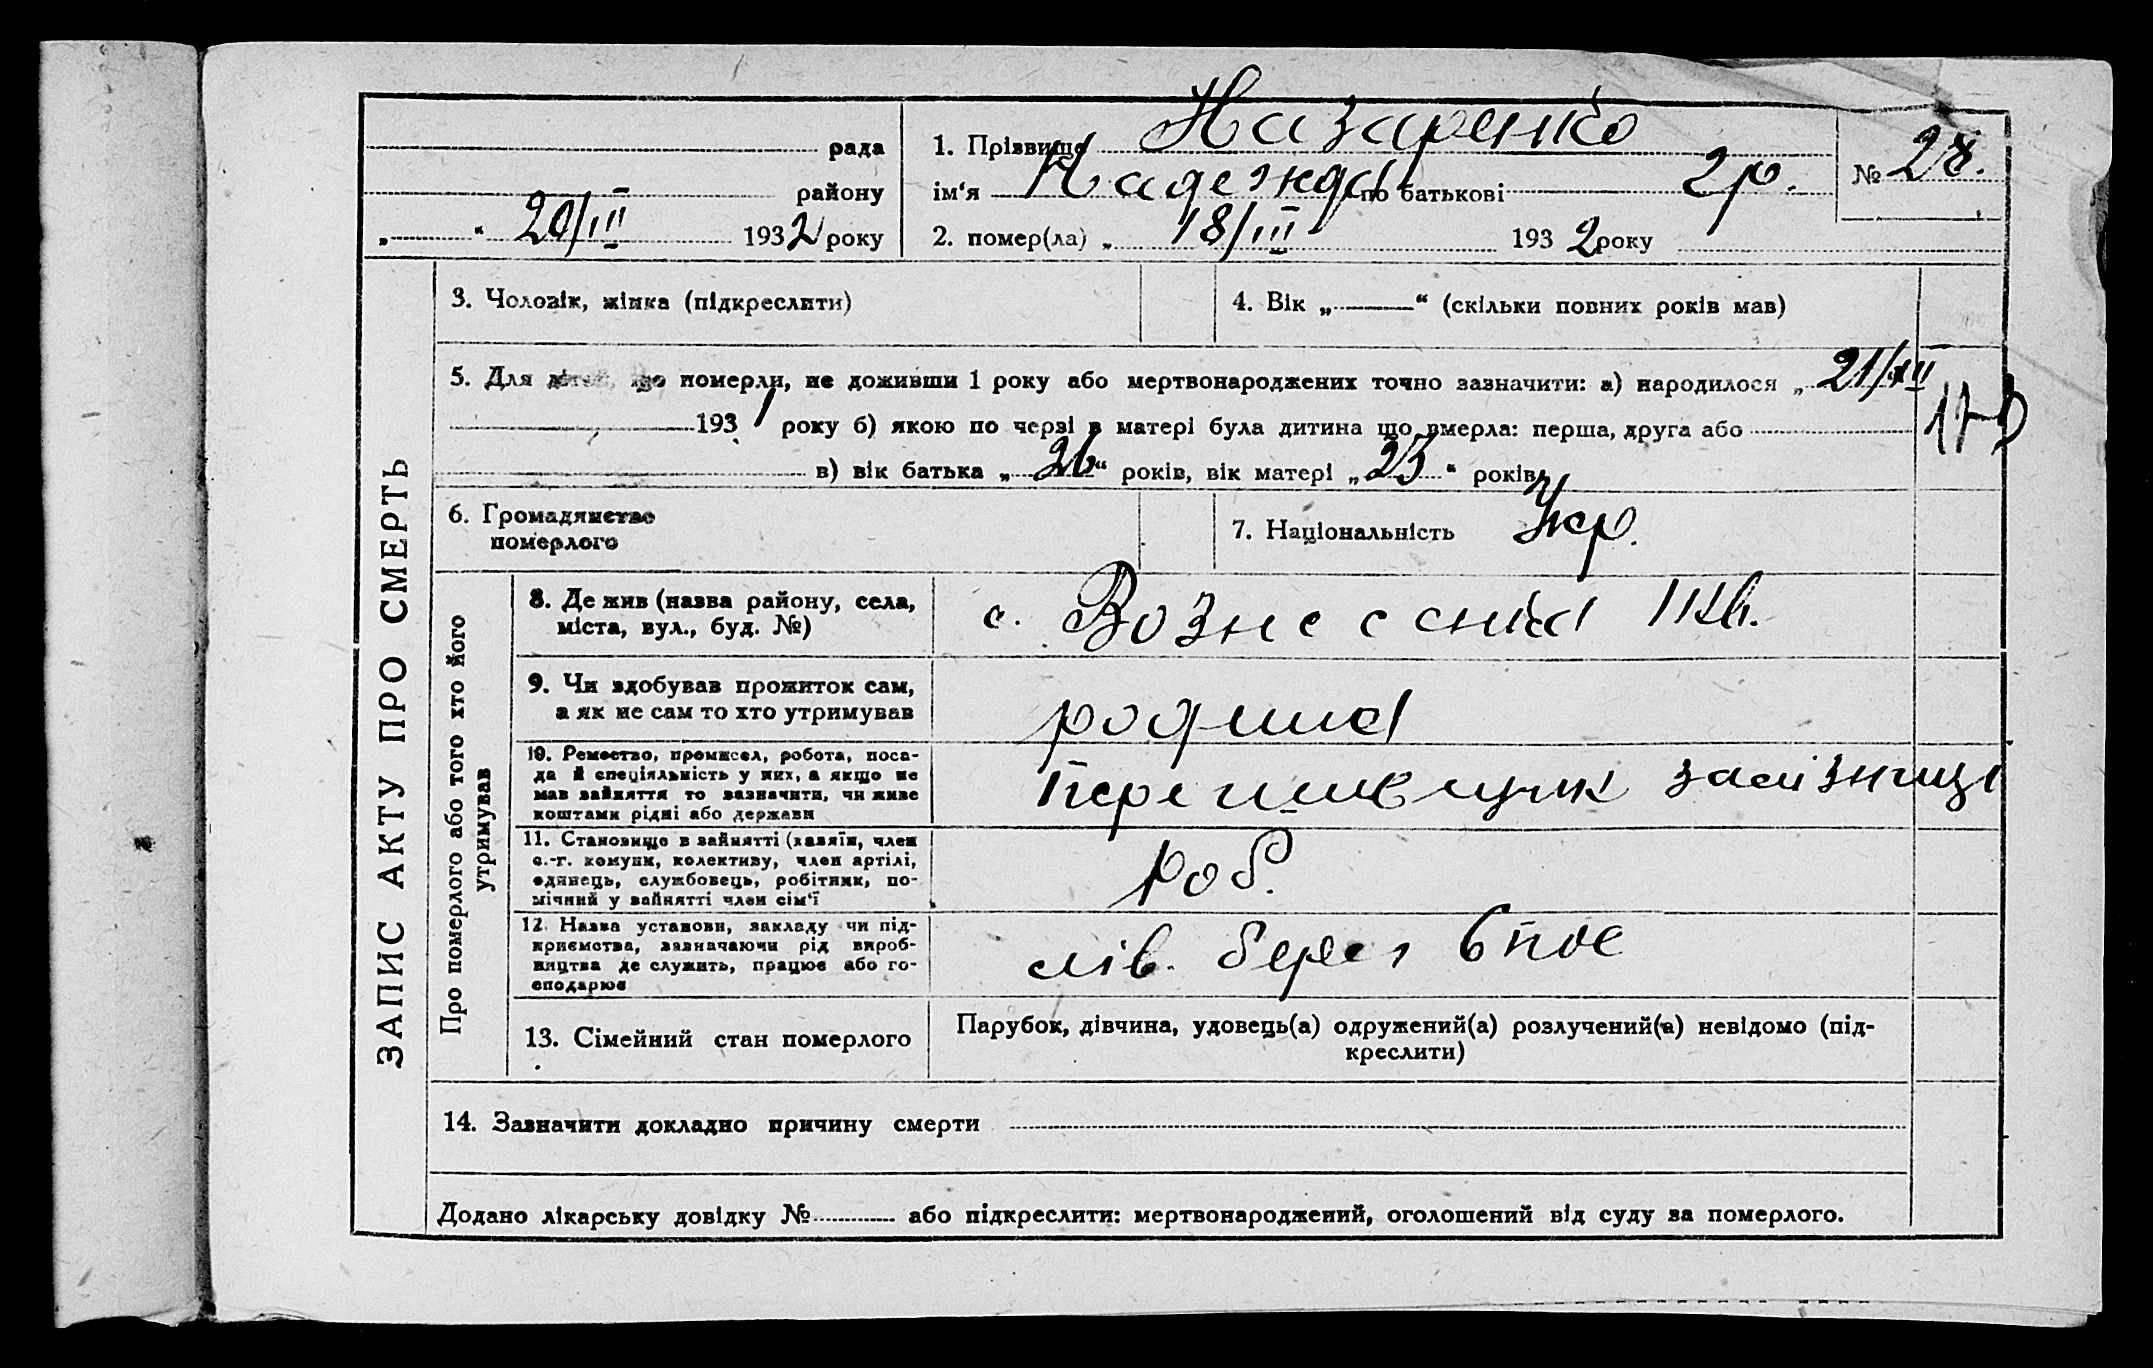 рада
району
„ “ 20/III 1932 року
1. Прізвище Назаренко
ім‘я Надежда по батькові Гр.
№ 28.
2. помер(ла) „ 18/III 1932 року
ЗАПИС АКТУ ПРО СМЕРТЬ
3. Чоловік, жінка (підкреслити)
4. Вік „ “ (скільки повних років мав)
5. Для дітей, що померли, не доживши 1 року або мертвонароджених точно зазначити: а) народилося „ 21/XII
1931 року б) якою по черзі в матері була дитина що вмерла: перша, друга або
в) вік батька „ 26 “ років, вік матері „ 23 “ років
6. Громадянство
померлого
7. Національність Укр.
Про померлого або того хто його
утримував
8. Де жив (назва району, села,
міста, вул., буд. №)
с. Вознесенка
9. Чи здобував прожиток сам,
а як не сам то хто утримував
родина
10. Ремество, промисел, робота, поса-
да й спеціяльність у них, а якщо не
мав зайняття то зазначити, чи живе
коштами рідні або держави
залізниці
11. Становище в зайнятті (хазяїн, член
с.-г. комуни, колективу, член артілі,
одинець, службовець, робітник, по-
мічний у зайнятті член сім‘ї
Роб.
12. Назва установи, закладу чи під-
приємства, зазначаючи рід вироб-
ництва де служить, працює або го-
сподарює
лів. берег 6 пос
13. Сімейний стан померлого
Парубок, дівчина, удовець(а) одружений(а) розлучений(а) невідомо (під-
креслити)
14. Зазначити докладно причину смерти
Додано лікарську довідку № або підкреслити: мертвонароджений, оголошений від суду за померлого.